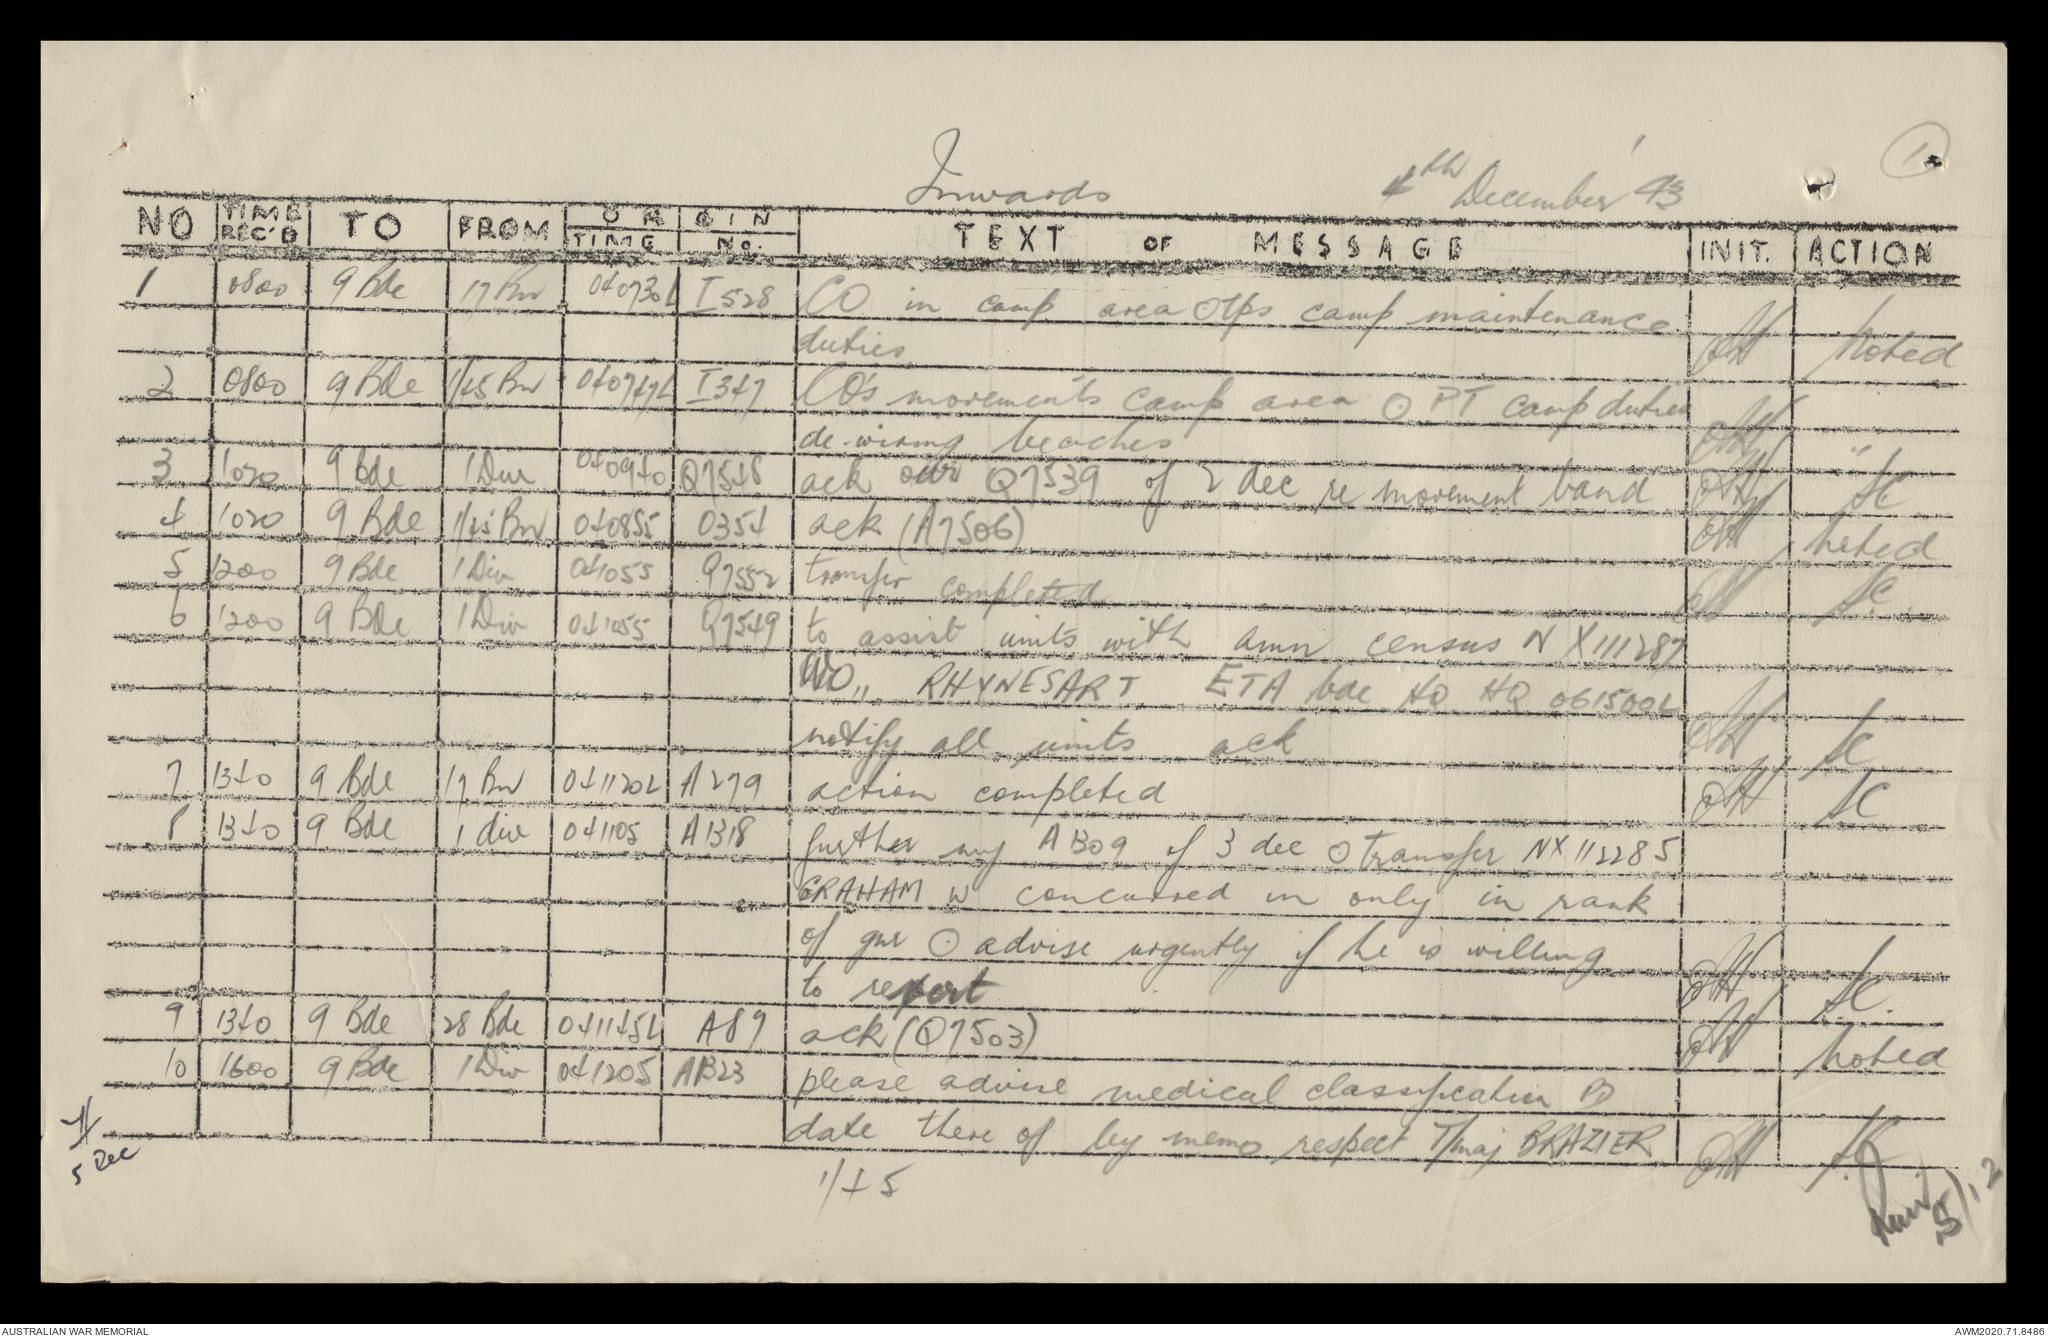 1
Inwards 4th December '43
NO TIME REC'D TO FROM ORIGIN TIME No. TEXT OF MESSAGE INIT. ACTION
1 0800 9 Bde 17 Bn 040730L I528 CO in camp area O tps camp maintenance
duties noted
2 0800 9 Bde 1/45 Bn 040747L I347 CO's movements camp area O PT camp duties
de-wiring beaches "
3 1020 9 Bde 1 Div 040940 Q7548 ack our Q7539 of 2 dec re movement band SC
4 1020 9 Bde 1/45 Bn 040855 O354 ack (A7506) noted
5 1200 9 Bde 1 Div 041055 Q7552 transfer completed SC
6 1200 9 Bde 1 Div 041055 Q7549 to assist units with amn census NX111287
WO II RHYNESART ETA bde HQ HQ 061500L
notify all units ack SC
7 1340 9 Bde 17 Bn 041120L A279 action completed SC
8 1340 9 Bde 1 div 041105 A1318 further my A1309 of 3 dec O transfer NX112285
GRAHAM W concurred in only in rank
of gnr O advise urgently if he is willing
to report SC
9 1340 9 Bde 28 Bde 041145L A87 ack (Q7503) noted
10 1600 9 Bde 1 Div 041205 A1323 please advise medical classification
date there of by memo respect T/maj BRAZIER
5 Dec
1/45
5/12
AUSTRALIAN WAR MEMORIAL AWM2020.71.8486